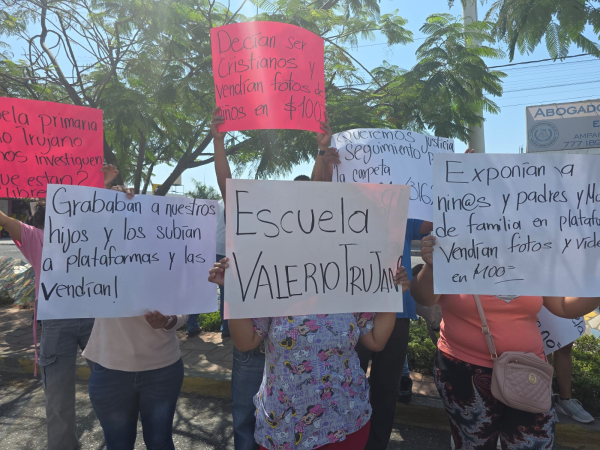 Decían ser
Cristianos y
vendian fotos de
en $100
uela primaria
io Trujano
nos investiguen
que estan?
Libres
Queremos justicia
seguimiento
la carpeta
316
ABOGADO
E
AMPA
777 18
Grababan a nuestros
hijos y los subían
a plataformas y las
vendían!
Escuela
VALERIO TRUJANO
Exponían a
niñ@s y padres y Ma
de familia en platafo
Vendían fotos y vide
en $100